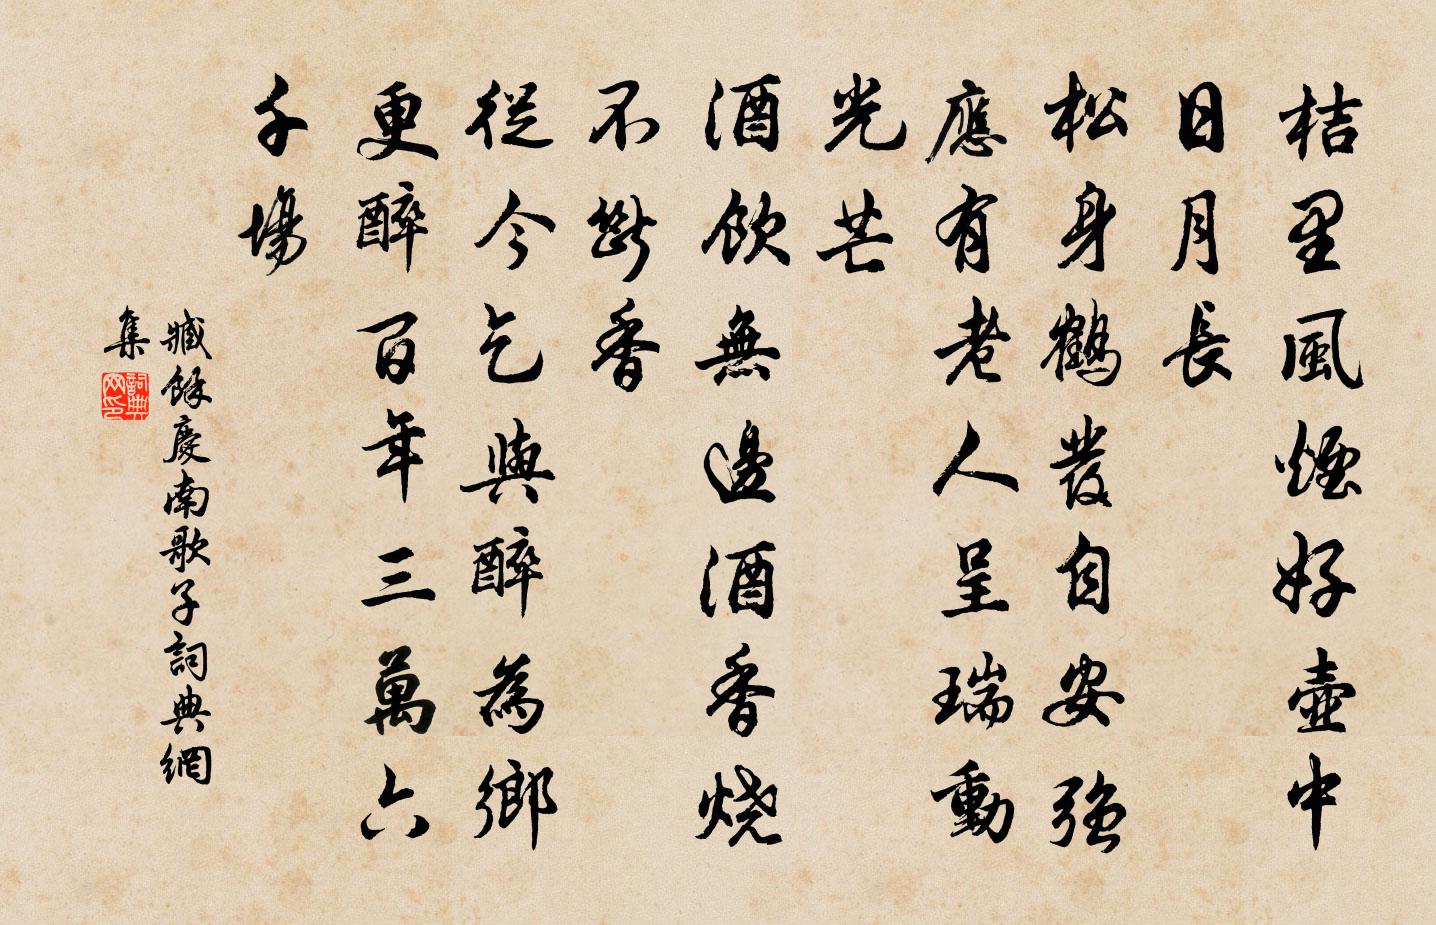 桔里風煙好壺中
日月長
松身鶴發自安强
應有老人呈瑞動
光芒
酒飲無邊酒香燒
不斷香
從今乞與醉為鄉
更醉百年三萬六
千場
臧餘慶南歌子詞典網
集
詞典網印